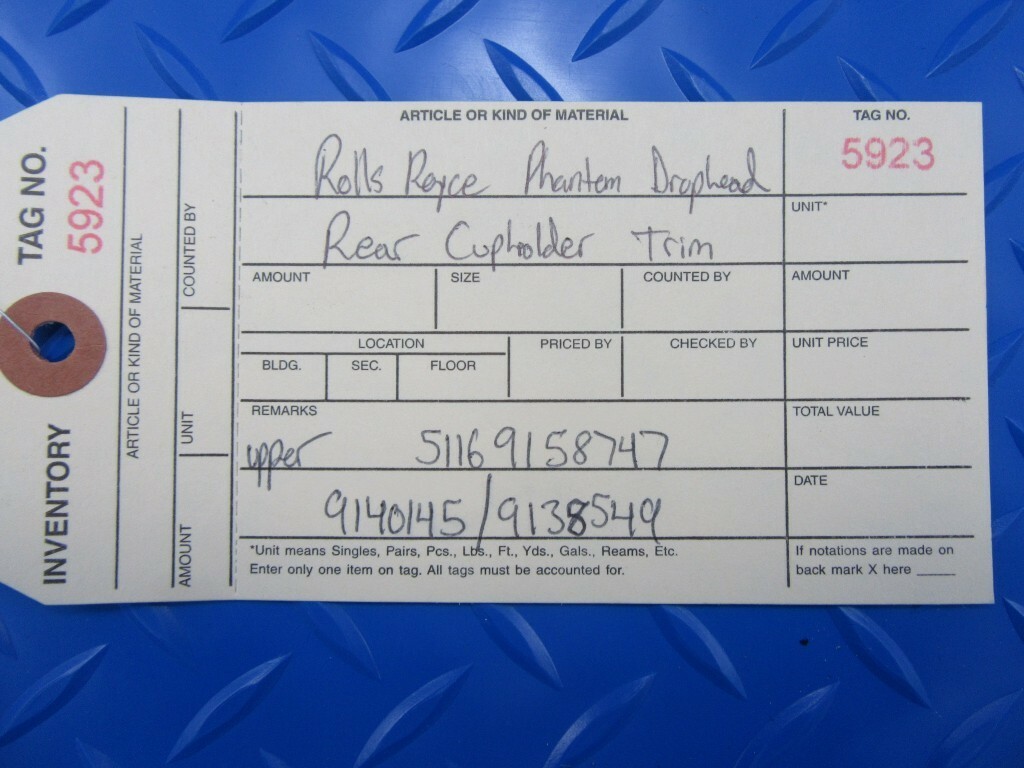 TAG NO.
5923
INVENTORY
ARTICLE OR KIND OF MATERIAL
COUNTED BY
UNIT
AMOUNT
ARTICLE OR KIND OF MATERIAL
TAG NO.
5923
Rolls Royce Phantom Drophead
UNIT*
Rear Cupholder Trim
AMOUNT SIZE COUNTED BY AMOUNT
LOCATION PRICED BY CHECKED BY UNIT PRICE
BLDG. SEC. FLOOR
REMARKS TOTAL VALUE
upper 51169158747
DATE
9140145/9138549
*Unit means Singles, Pairs, Pcs., Lbs., Ft., Yds., Gals., Reams, Etc.
Enter only one item on tag. All tags must be accounted for.
If notations are made on
back mark X here _____